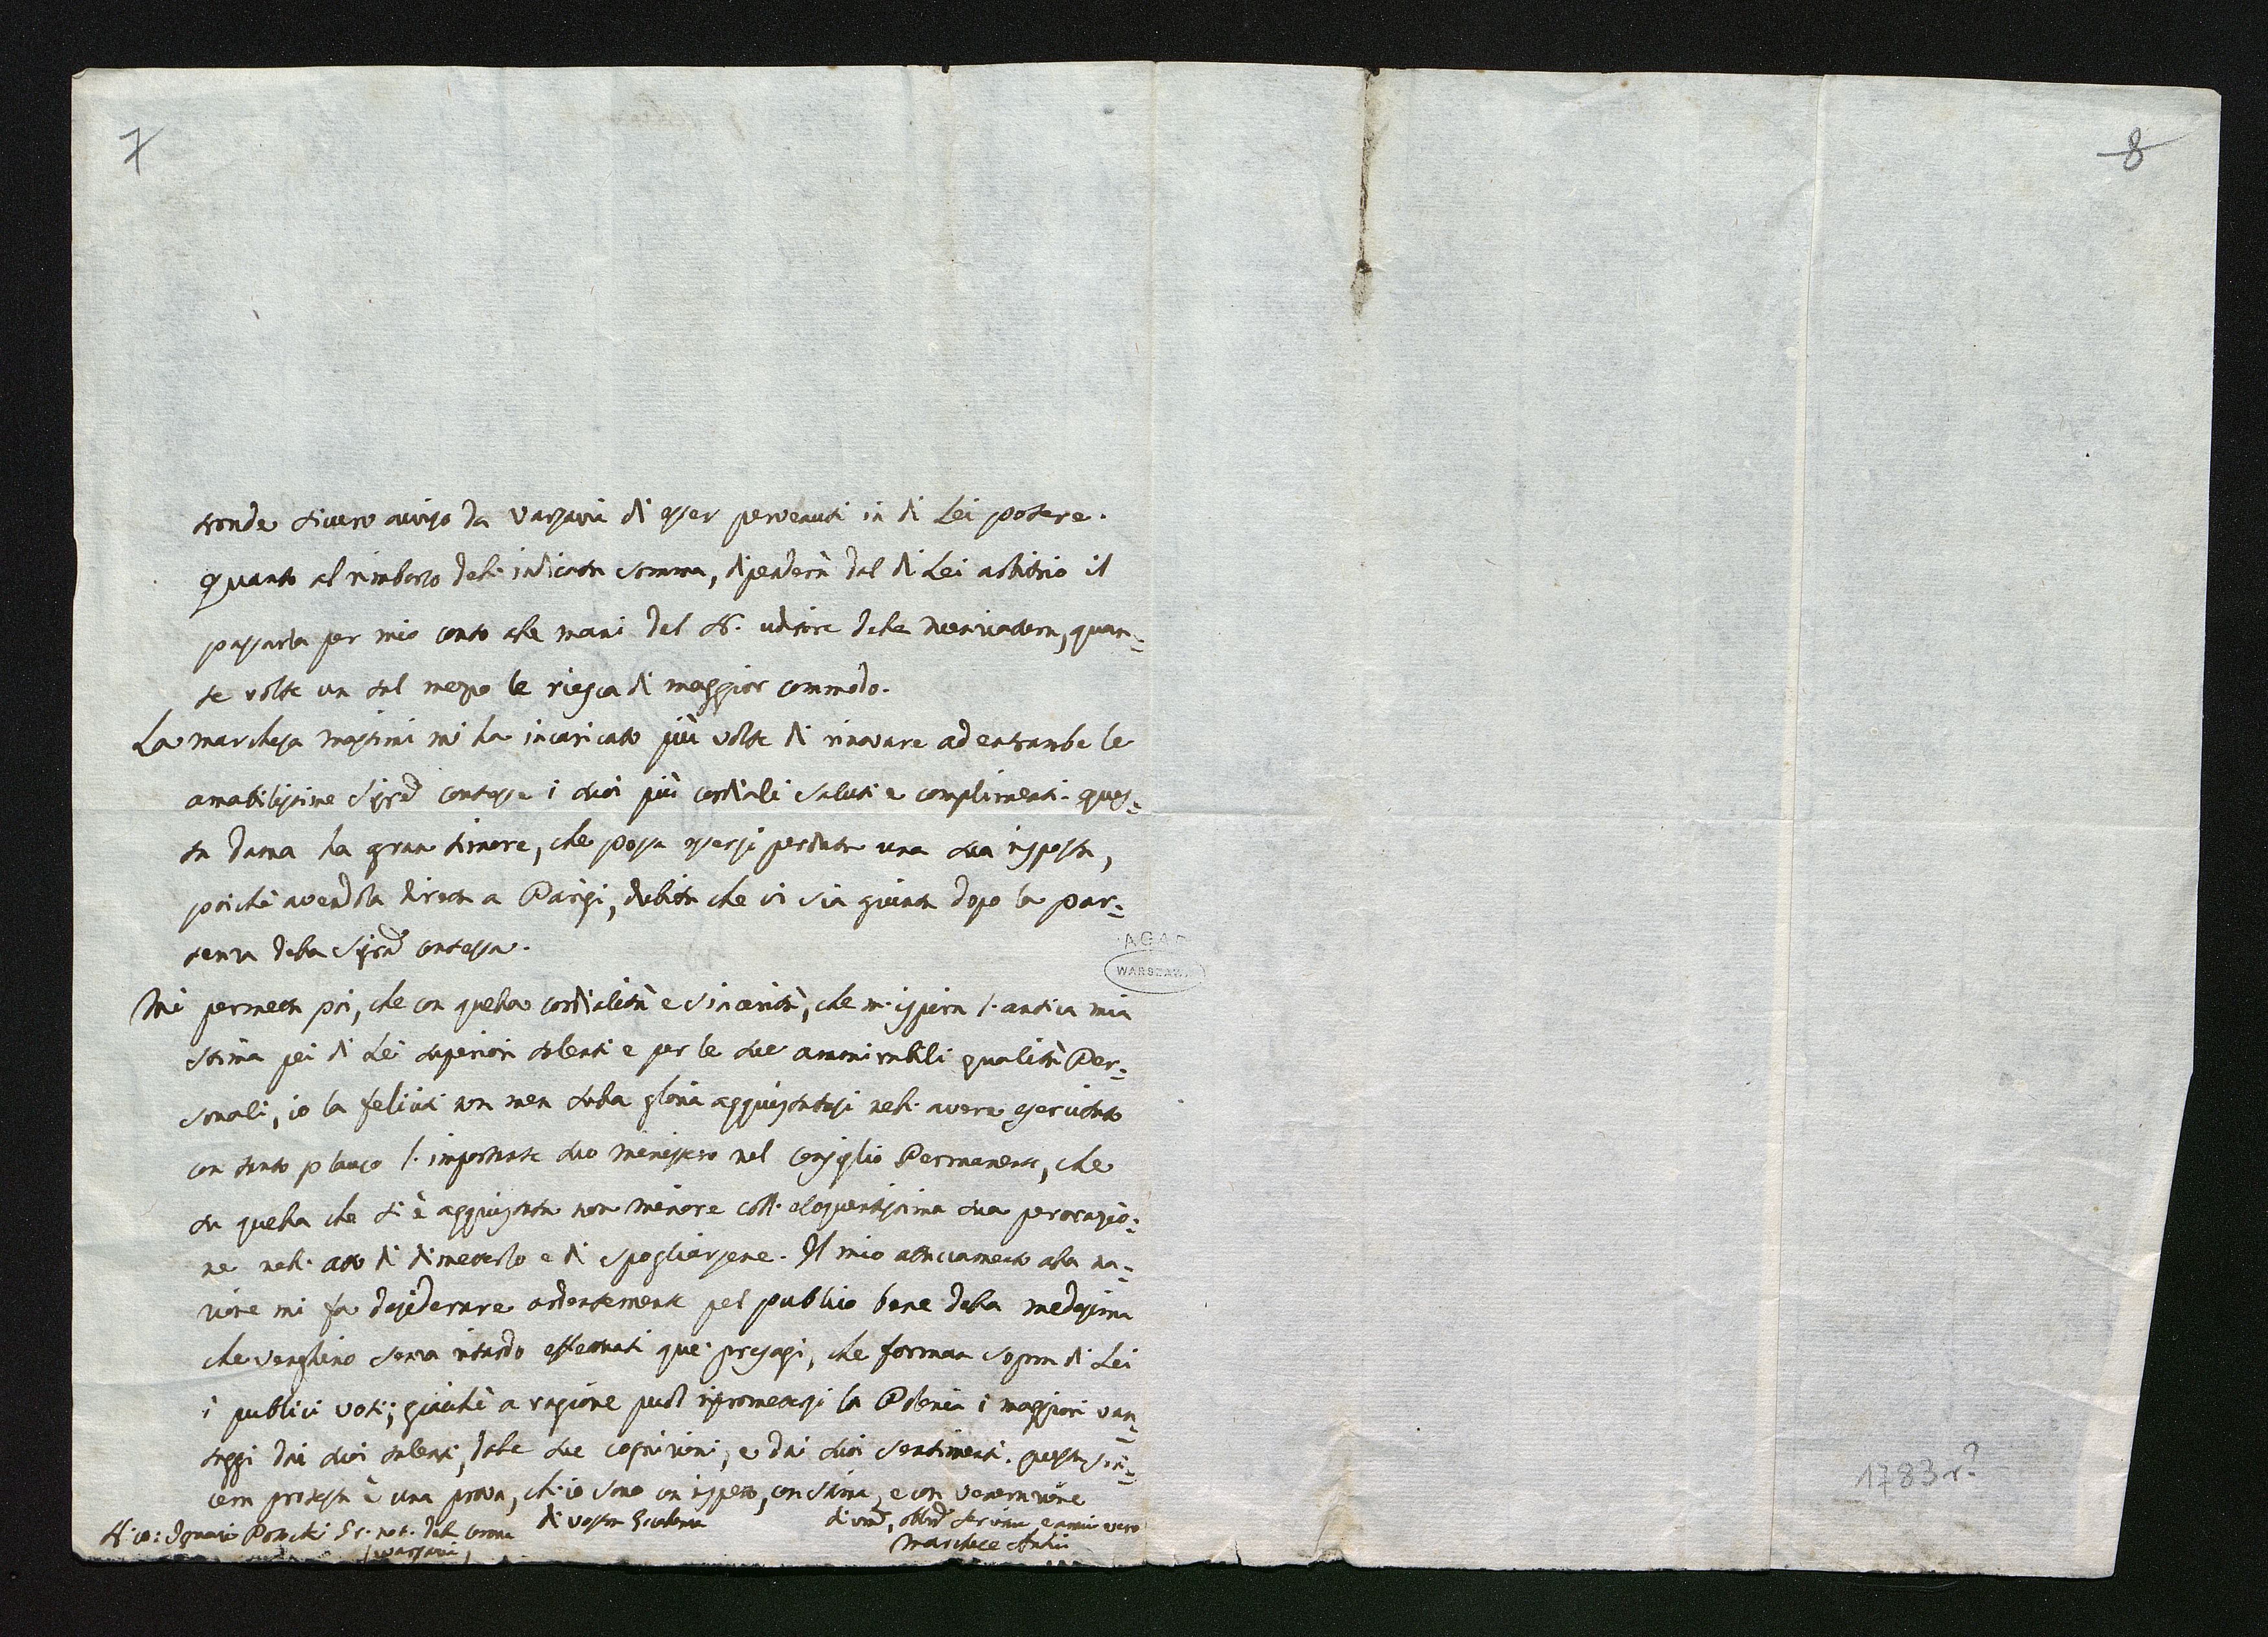 7
8
tronde sicuro aviso da Varsavia di esser pervenuti in di Lei potere.
Quanto al rimborso dell' indicata somma, dipenderà dal di Lei arbitrio il
passarla per mio conto alle mani del Sr. uditore della Nunziatura, quan-
te volte un tal mezzo le riesca di maggior commodo.
La marchesa Massimi mi ha incaricato più volte di rinovare ad entrambe le
amabilissime Sigre contesse i suoi più cordiali saluti e complimenti. ques-
ta Dama ha gran timore, che possa essersi perduta una sua risposta,
poiché avendola diretta a Parigi, dubita che vi sia giunta dopo la par-
tenza della Sigra contessa.
Mi permetta poi, che con quella cordialità e sincerità, che m' ispira l' antica mia
stima pei di Lei superiori talenti e per le sue ammirabili qualità Per-
sonali, io la feliciti non men della gloria acquistatasi nell' avere esercitato
con tanto plauso l' importante suo ministero nel Consiglio Permanente, che
di quella che si è acquistata non minore coll' eloquentissima sua perorazio-
ne nell' atto di dimetterlo e di spogliarsene. Il mio attaccamento alla na-
zione mi fa desiderare ardentemente pel publico bene della medesima
che venghino senza ritardo effettuati que' presagi, che forman sopra di Lei
i publici voti; giacché a ragione può ripromettersi la Polonia i maggiori van-
taggi dai suoi talenti, dalle sue cognizioni, e dai suoi sentimenti. questa sin-
cera protesta è una prova, ch' io sono con rispetto, con stima, e con venerazione
di vostra Eccellenza
Sr. co: Ignazio Potocki Gr. not. della corona
Varsavia
servitore e amico vero
Marchese Antici
AGAD
WARSZAWA
1783 r?